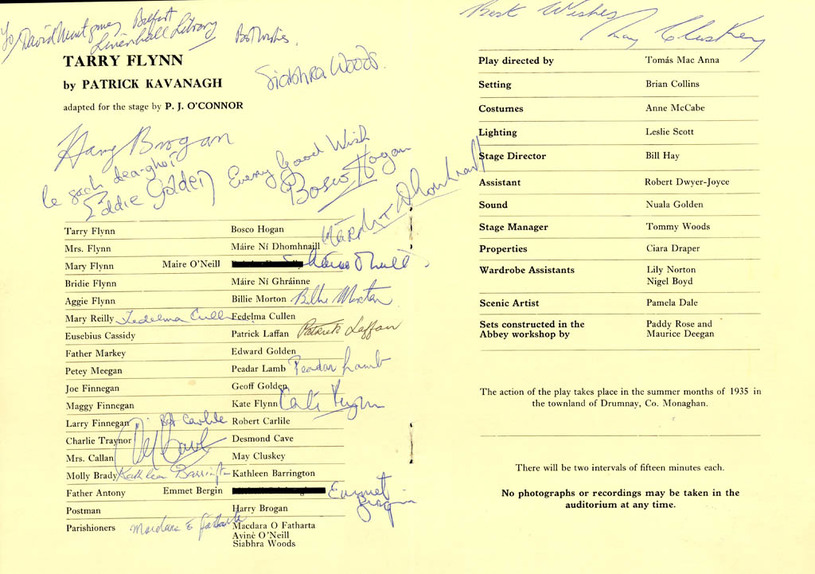 To David Montgomery Belfast
Linenhall Library
Best Wishes.
Siabhra Woods.
TARRY FLYNN
by PATRICK KAVANAGH
adapted for the stage by P. J. O'CONNOR
Harry Brogan
le gach dea-ghuí
Eddie Golden
Every Good Wish
Bosco Hogan
Máire Ní Dhomhnaill
Tarry Flynn Bosco Hogan
Mrs. Flynn Máire Ní Dhomhnaill
Mary Flynn Maire O'Neill
Bridie Flynn Máire Ní Ghráinne
Aggie Flynn Billie Morton Billie Morton
Mary Reilly Fedelma Cullen Fedelma Cullen
Eusebius Cassidy Patrick Laffan Patrick Laffan
Father Markey Edward Golden
Petey Meegan Peadar Lamb Peadar Lamb
Joe Finnegan Geoff Golden
Maggy Finnegan Kate Flynn Cáit Flynn
Larry Finnegan Bob Carlile Robert Carlile
Charlie Traynor Des Cave Desmond Cave
Mrs. Callan May Cluskey
Molly Brady Kathleen Barrington Kathleen Barrington
Father Antony Emmet Bergin Emmet Bergin
Postman Harry Brogan
Parishioners Macdara Ó Fatharta Macdara O Fatharta
Aviné O'Neill
Siabhra Woods
Best Wishes
May Cluskey
Play directed by Tomás Mac Anna
Setting Brian Collins
Costumes Anne McCabe
Lighting Leslie Scott
Stage Director Bill Hay
Assistant Robert Dwyer-Joyce
Sound Nuala Golden
Stage Manager Tommy Woods
Properties Ciara Draper
Wardrobe Assistants Lily Norton
Nigel Boyd
Scenic Artist Pamela Dale
Sets constructed in the Paddy Rose and
Abbey workshop by Maurice Deegan
The action of the play takes place in the summer months of 1935 in
the townland of Drumnay, Co. Monaghan.
There will be two intervals of fifteen minutes each.
No photographs or recordings may be taken in the
auditorium at any time.